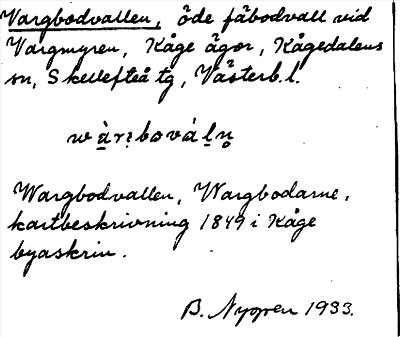 Vargbodvallen, öde fäbodvall vid
Vargmyren, Kåge ägor, Kågedalens
sn, Skellefteå tg, Västerb. l.
wὰrᶖbωvάḷn̥
Wargbodvallen, Wargbodarne,
kartbeskrivning 1849 i Kåge
byaskrin.
B. Nygren 1933.